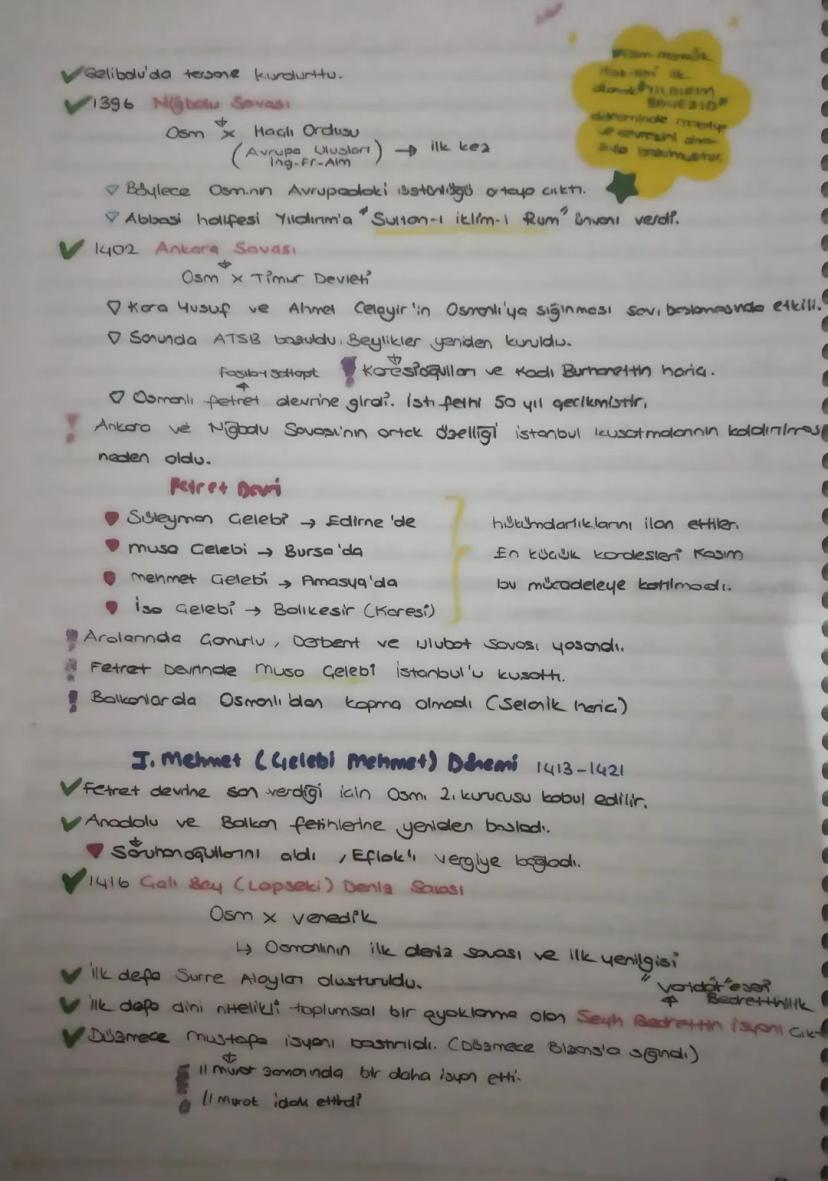 ✓ Gelibolu'da tersane kurdurttu.
✓ 1396 Niğbolu Savaşı
Osm x Haçlı Ordusu
(Avrupa Ulusları) → ilk kez
İng-Fr-Alm
Osmanlı Memlük
ilk
olarak "YILDIRIM
BEYEZID"
döneminde
♡ Böylece Osm.nın Avrupadaki üstünlüğü ortaya çıktı.
♡ Abbasi halifesi Yıldırım'a "Sultan-ı iklim-i Rum" ünvanı verdi.
✓ 1402 Ankara Savaşı
Osm x Timur Devleti
♡ Kara Yusuf ve Ahmet Celayir'in Osmanlı'ya sığınması sav. başlamasında etkili.
♡ Sonunda ATSB bozuldu. Beylikler yeniden kuruldu.
! Karesioğulları ve Kadı Burhanettin hariç.
♡ Osmanlı fetret devrine girdi. ist. fethi 50 yıl gecikmiştir.
! Ankara ve Niğbolu Savaşı'nın ortak özelliği istanbul kuşatmalarının kaldırılması
neden oldu.
Fetret Devri
♥ Süleyman Çelebi → Edirne'de
♥ Musa Çelebi → Bursa'da
♥ Mehmet Çelebi → Amasya'da
♥ İsa Çelebi → Balıkesir (Karesi)
hükümdarlıklarını ilan ettiler.
En küçük kardeşleri Kasım
bu mücadeleye katılmadı.
! Aralarında Çamurlu, Derbent ve Ulubat savaşı yaşandı.
! Fetret Devrinde Musa Çelebi İstanbul'u kuşattı.
! Balkanlarda Osmanlı'dan kopma olmadı (Selanik hariç)
I. Mehmet (Çelebi Mehmet) Dönemi 1413-1421
✓ Fetret devrine son verdiği için Osm. 2. kurucusu kabul edilir.
✓ Anadolu ve Balkan fetihlerine yeniden başladı.
♥ Saruhanoğullarını aldı, Eflak'ı vergiye bağladı.
✓ 1416 Çalı Bey (Lapseki) Deniz Savaşı
Osm x Venedik
↳ Osmanlının ilk deniz savaşı ve ilk yenilgisi
✓ ilk defa Surre Alayları oluşturuldu.
"Varidat" eseri
Bedrettinilik
✓ ilk defa dini nitelikli toplumsal bir ayaklanma olan Şeyh Bedrettin İsyanı çık
✓ Düzmece Mustafa isyanı bastırıldı. (Düzmece Bizans'a sığındı)
! II Murat zamanında bir daha isyan etti.
! II Murat idam ettirdi